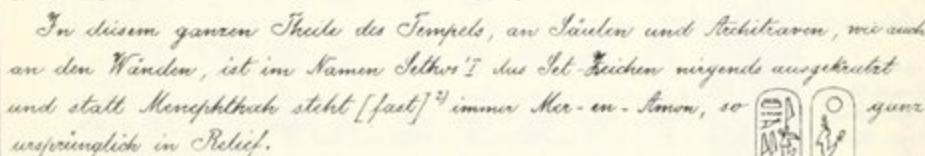 In diesem ganzen Theile des Tempels, an Säulen und Architraven, wie auch
an den Wänden, ist im Namen Sethos' I das Set-Zeichen nirgends ausgekratzt
und statt Menephthah steht [fast] 2) immer Mer-en-Amon, so ganz
ursprünglich in Relief.